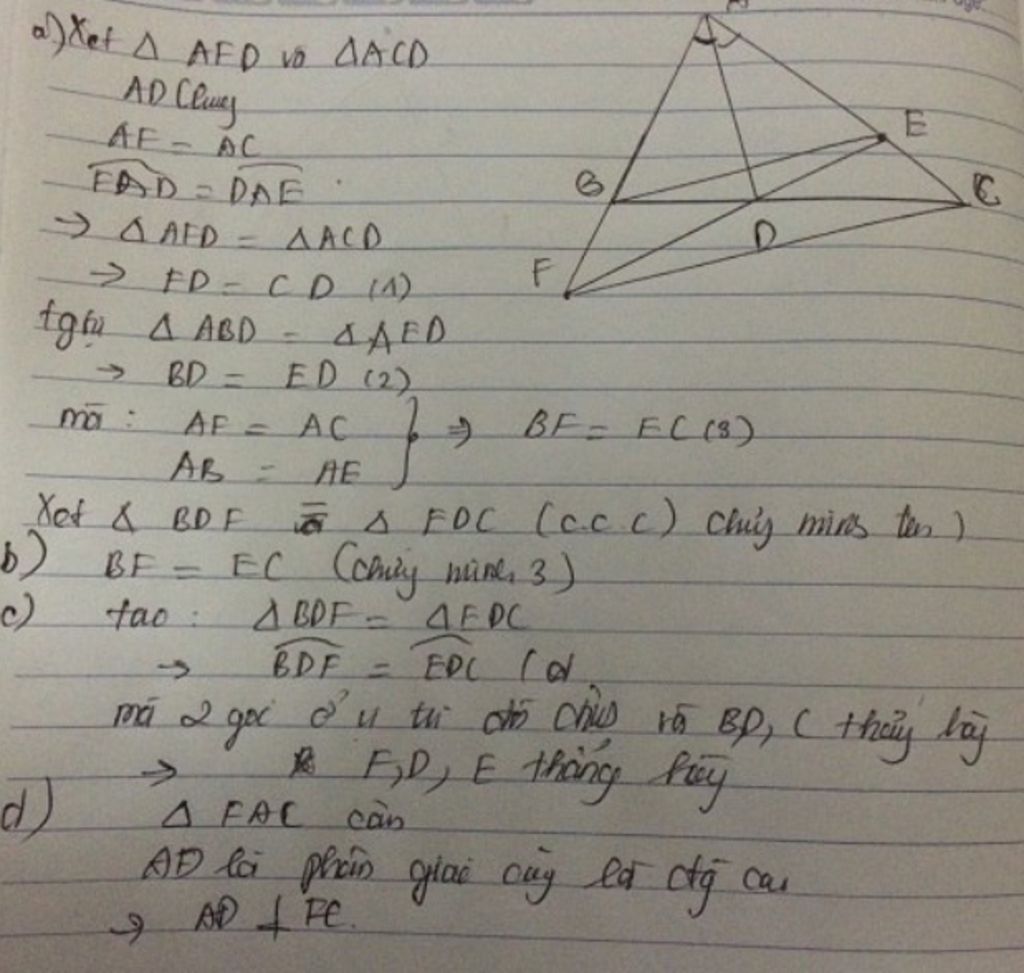 a) Xét Δ AFD và ΔACD
AD Chung
AF = AC
FAD = DAE
→ Δ AFD = ΔACD
→ FD = CD (1)
tg tự Δ ABD = Δ AED
→ BD = ED (2)
mà : AF = AC
AB = AE
} ⇒ BF = EC (3)
Xét Δ BDF = Δ EDC (c.c.c) chứng minh trên)
b) BF = EC (chứng minh 3)
c) ta có : Δ BDF = Δ EDC
→ BDF = EDC
mà 2 góc ở vị trí đối đỉnh và BD, C thẳng hàng
→ F, D, E thẳng hàng
d) Δ FAC cân
AD là phân giác cũng là đg cao
→ AD ⊥ FC.
A
B
C
D
E
F